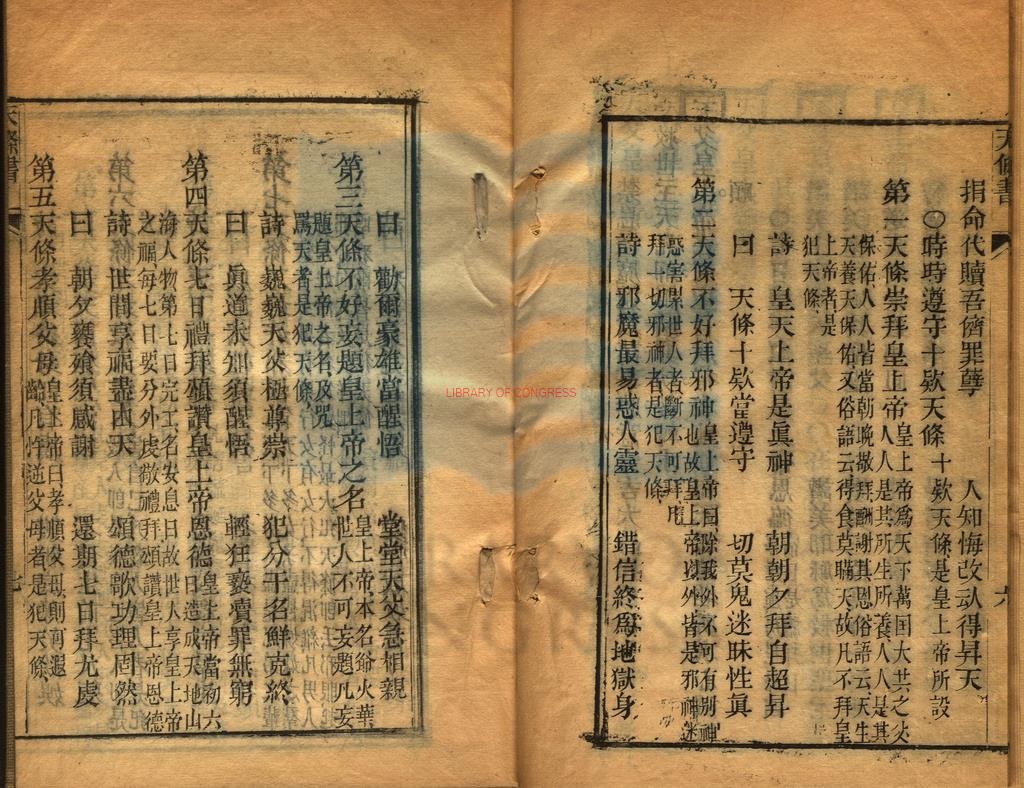 天條書
六
捐命代贖吾儕罪孽　人知悔改魂得昇天
○時時遵守十欵天條十欵天條是皇上帝所設
第一天條崇拜皇上帝皇上帝爲天下萬国大共之父
人人是其所生所養人人是其
保佑人人皆當朝晚敬拜酬謝其恩俗語云天生
天養天保佑又俗語云得食莫瞞天故凡不拜皇
上帝者是
犯天條
詩曰　皇天上帝是眞神　朝朝夕拜自超昇
曰　天條十欵當遵守　切莫鬼迷昧性眞
第二天條不好拜邪神皇上帝曰除我外不可有別神
也故皇上帝以外皆是邪神迷
惑害累世人者斷不可拜凡
拜一切邪神者是犯天條
詩　邪魔最易惑人靈　錯信終爲地獄身
曰　勸爾豪雄當醒悟　堂堂天父急相親
第三天條不好妄題皇上帝之名皇上帝本名爺火華
世人不可妄題凡妄
題皇上帝之名及咒
罵天者是犯天條
詩　巍巍天父極尊崇　犯分干名鮮克終
曰　眞道未知須醒悟　輕狂褻瀆罪無窮
第四天條七日禮拜頌讚皇上帝恩德皇上帝當初六
日造成天地山
海人物第七日完工名安息日故世人享皇上帝
之福每七日要分外虔敬禮拜頌讚皇上帝恩德
詩　世間享福盡由天　頌德歌功理固然
曰　朝夕饔飧須感謝　還期七日拜尤虔
第五天條孝順父母皇上帝曰孝順父母則可遐
齡凡忤逆父母者是犯天條
天條書
七
LIBRARY OF CONGRESS